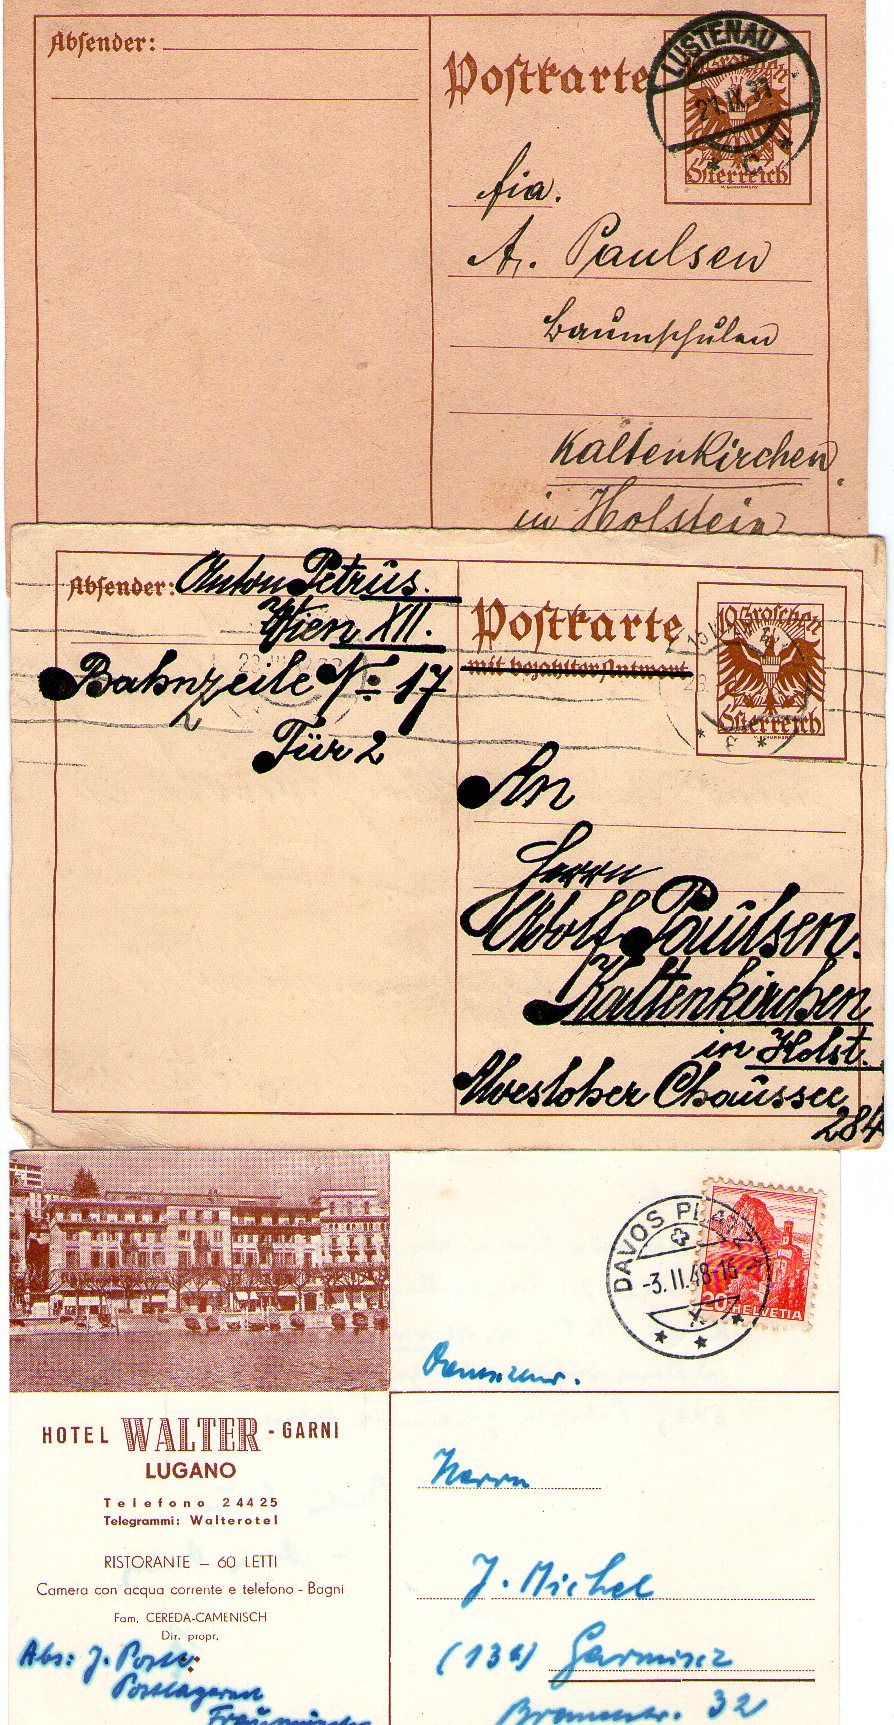 Absender:
Postkarte
LUSTENAU
21.IX.31
* C *
Österreich
Fia.
A. Paulsen
Baumschulen
Kaltenkirchen
in Holstein
Absender: Anton Petrus.
Wien XII.
Bahnzeile No 17
Tür 2
Postkarte
mit bezahlter Antwort
10 Groschen
Österreich
An
Herrn
Adolf Paulsen.
Kaltenkirchen
in Holst.
Alvesloher Chaussee
284
DAVOS PLATZ
-3.II.48-16
20 HELVETIA
HOTEL WALTER - GARNI
LUGANO
Telefono 24425
Telegrammi: Walterotel
RISTORANTE – 60 LETTI
Camera con acqua corrente e telefono - Bagni
Fam. CEREDA-CAMENISCH
Dir. propr.
Abs: J.
Postlagernd
Herrn
J. Michel
(13a) Garmisch
32